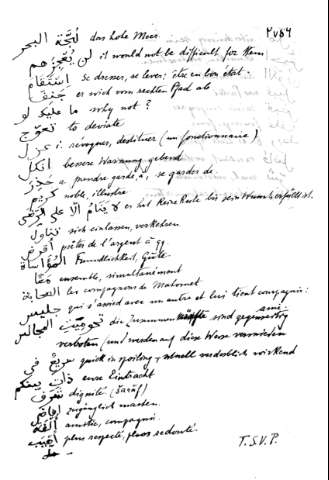 ٢٧٥٩
لجة البحر das hohe Meer.
لن يعجزهم it would not be difficult for them
استقام se dresser, se lever; être en bon état.
er wich vom rechten Pfad ab
ما عليك لو why not?
تعوج to deviate
عزل i. révoquer, destituer (un fonctionnaire)
bessere Warnung gebend
حذر s prendre garde à; se garder de
كريم noble, illustre
لا ينام الا على er hat keine Ruhe bis sein Wunsch erfüllt ist.
sich einlassen, verkehren
أقرض prêter de l'argent à qq
المؤاساة Freundlichkeit, Güte
معا ensemble, simultanément
الصحابة les compagnons de Mahomet
جليس qui s'assied avec un autre et lui tient compagnie: ami
المجالس die Zusammenkünfte sind gegenwärtig
verboten (und werden auf diese Weise vermieden
سريع في quick in spoiling, schnell verderblich wirkend
ذات بينكم eure Eintracht
شرف dignité (šaraf)
zugänglich machen.
الفة amitié, compagnie
plus respecté, plus redouté.
T.S.V.P.